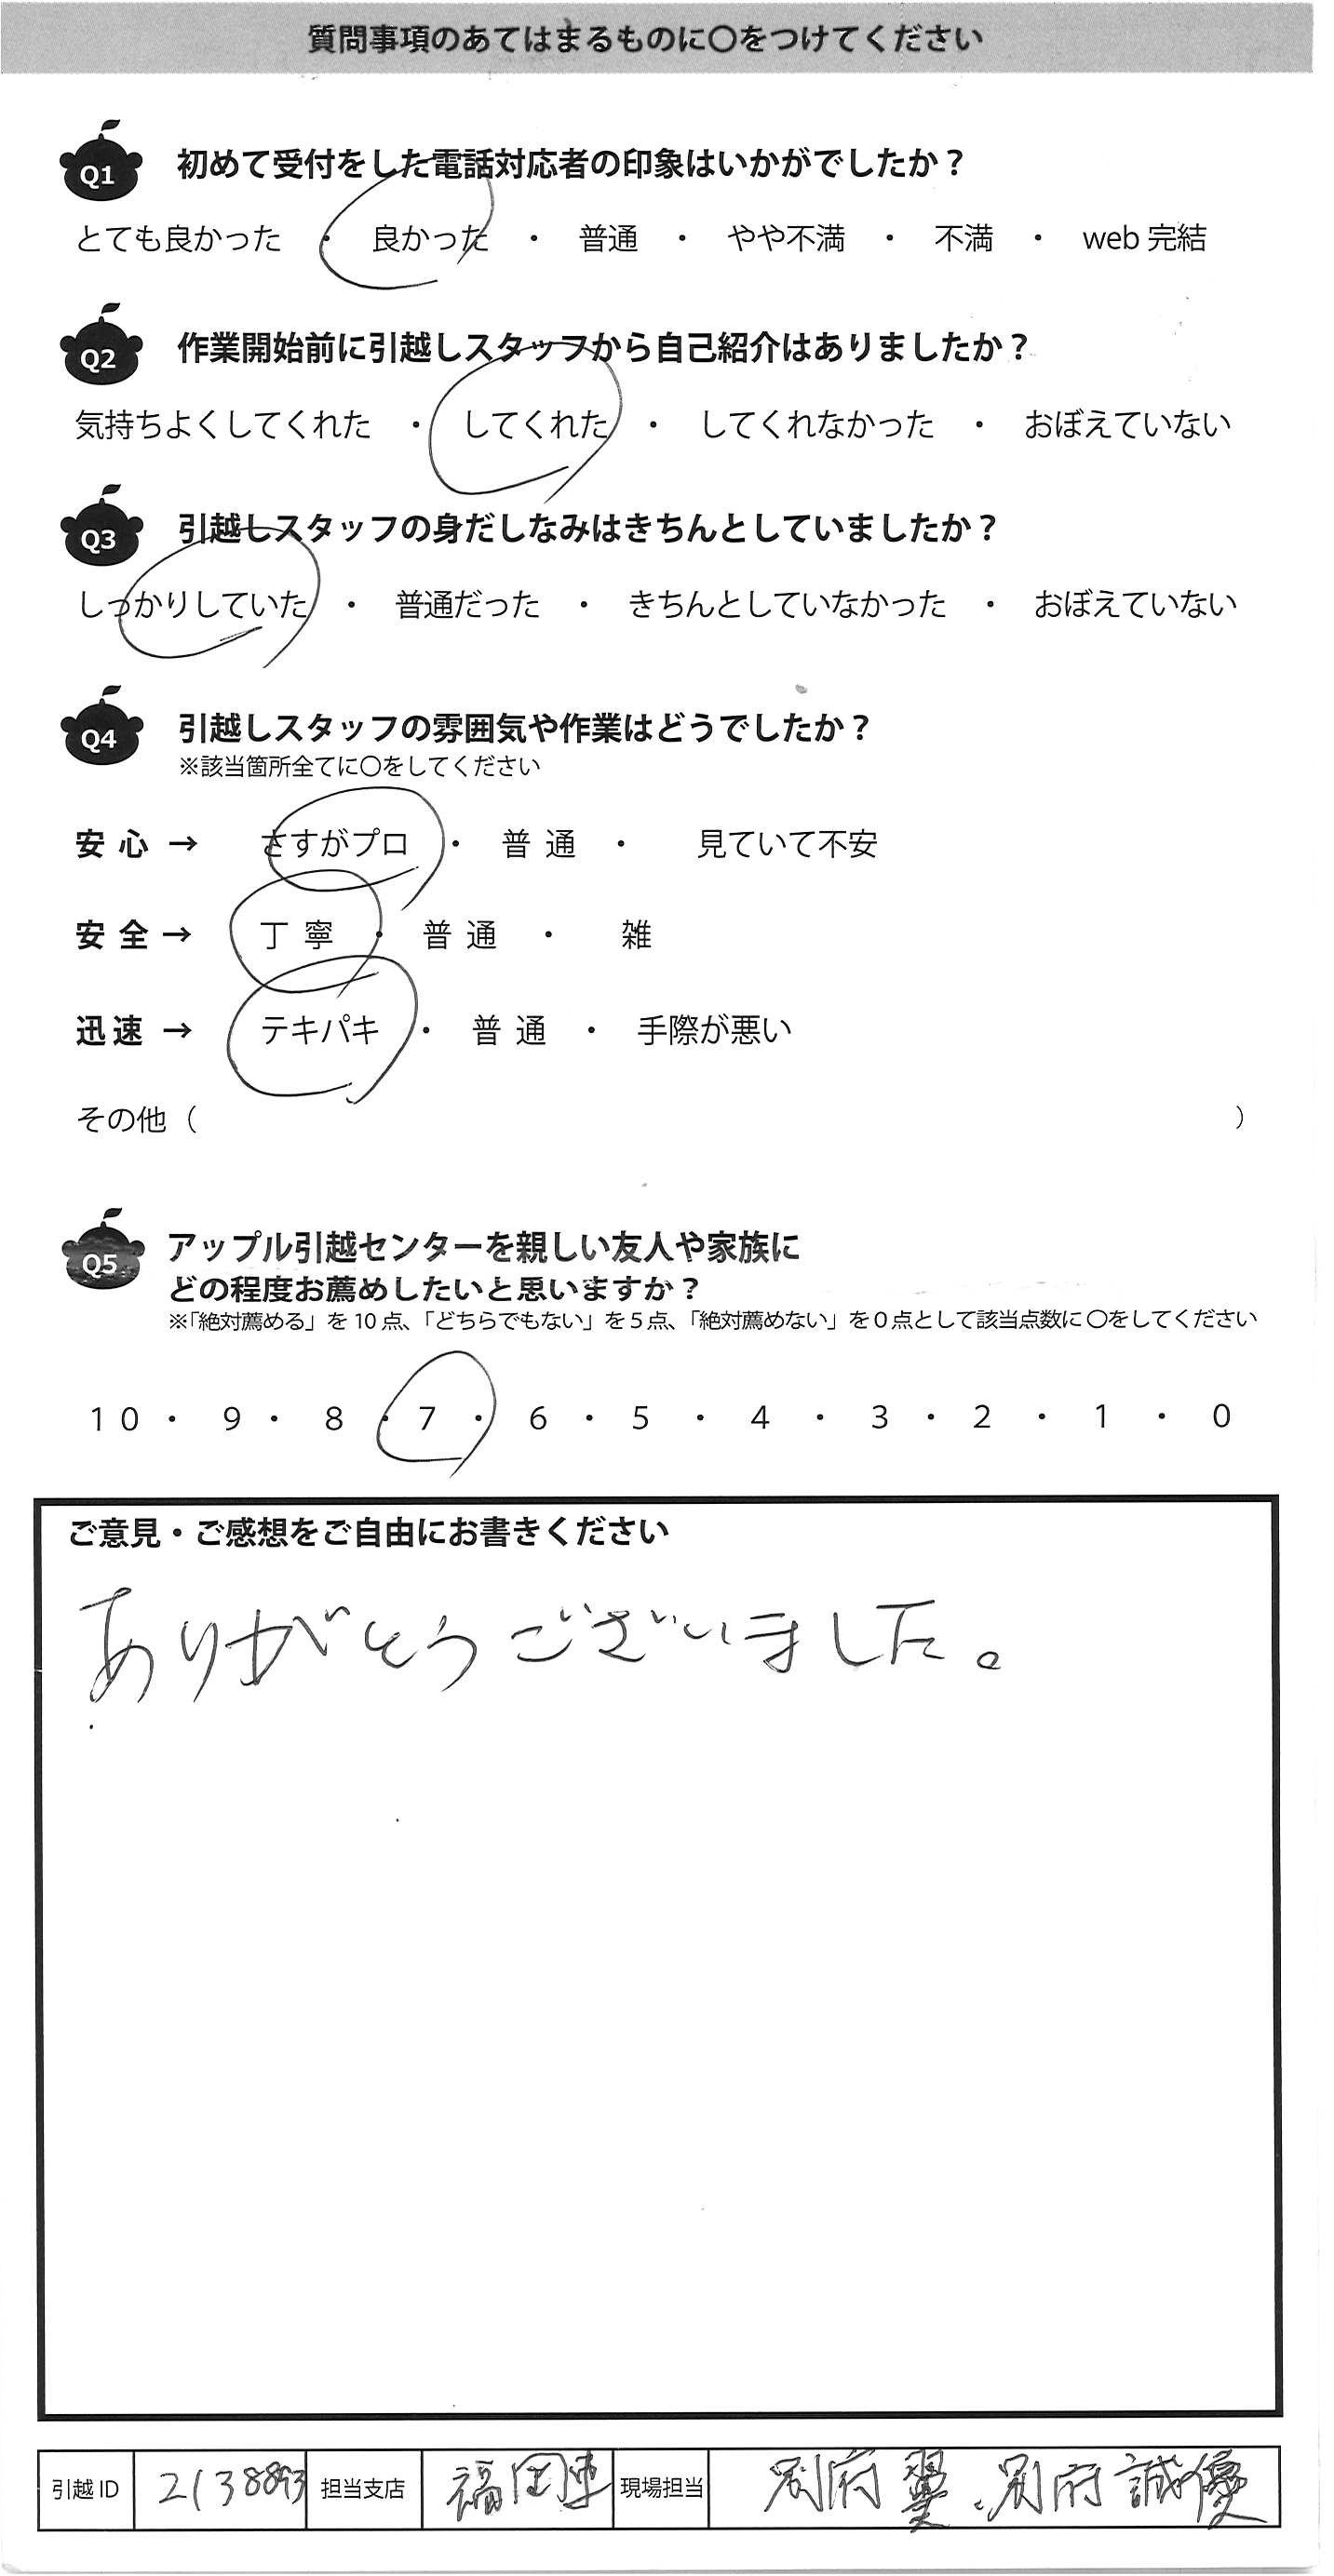 質問事項のあてはまるものに〇をつけてください
Q1 初めて受付をした電話対応者の印象はいかがでしたか？
とても良かった ・ 良かった ・ 普通 ・ やや不満 ・ 不満 ・ web 完結
Q2 作業開始前に引越しスタッフから自己紹介はありましたか？
気持ちよくしてくれた ・ してくれた ・ してくれなかった ・ おぼえていない
Q3 引越しスタッフの身だしなみはきちんとしていましたか？
しっかりしていた ・ 普通だった ・ きちんとしていなかった ・ おぼえていない
Q4 引越しスタッフの雰囲気や作業はどうでしたか？
※該当箇所全てに〇をしてください
安心 → さすがプロ ・ 普通 ・ 見ていて不安
安全 → 丁寧 ・ 普通 ・ 雑
迅速 → テキパキ ・ 普通 ・ 手際が悪い
その他（ ）
Q5 アップル引越センターを親しい友人や家族に
どの程度お薦めしたいと思いますか？
※「絶対薦める」を 10 点、「どちらでもない」を 5 点、「絶対薦めない」を 0 点として該当点数に 〇をしてください
10 ・ 9 ・ 8 ・ 7 ・ 6 ・ 5 ・ 4 ・ 3 ・ 2 ・ 1 ・ 0
ご意見・ご感想をご自由にお書きください
ありがとうございました。
引越 ID 2138893 担当支店 福岡 現場担当 別府翼、別府誠優